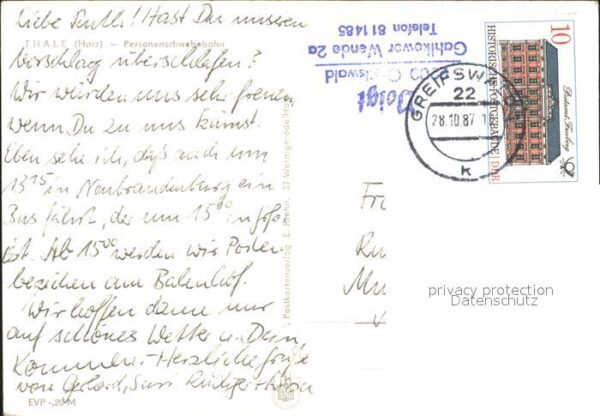 Liebe Ruth! Hast Du unseren
THALE (Harz) – Personenschwebebahn
Vorschlag überschlafen?
Wir würden uns sehr freuen
wenn Du zu uns kämst.
Eben sehe ich, daß auch um
13¹⁵ in Neubrandenburg ein
Bus fährt, der um 15⁰⁰ in
ist. Ab 15⁰⁰ werden wir Posten
beziehen am Bahnhof.
Wir hoffen dann nur
auf schönes Wetter u. Dein
Kommen. Herzliche Grüße
von Gerhard, Rüdiger
EVP -,20 M
Postkartenverlag E. Riehn, 37 Wernigerode/Harz
Voigt
Greifswald
Gahlkower Wende 2a
Telefon 811485
GREIFSWALD
22
28.10.87
k
10
HISTORISCHE POSTGEBÄUDE DDR
Postamt Freiberg
Fr
Ru
Mu
privacy protection
Datenschutz